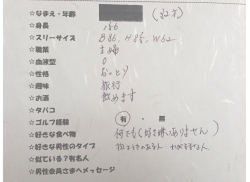 ☆なまえ・年齢 (32才)
☆身長 156
☆スリーサイズ B86, H85, W62
☆職業 主婦
☆血液型 O
☆性格 おっとり
☆趣味 旅行
☆お酒 飲めます
☆タバコ 有・無
☆ゴルフ経験
☆好きな食べ物 何でも(好き嫌いありません)
☆好きな男性のタイプ
☆似ている?有名人
☆男性会員さまへメッセージ